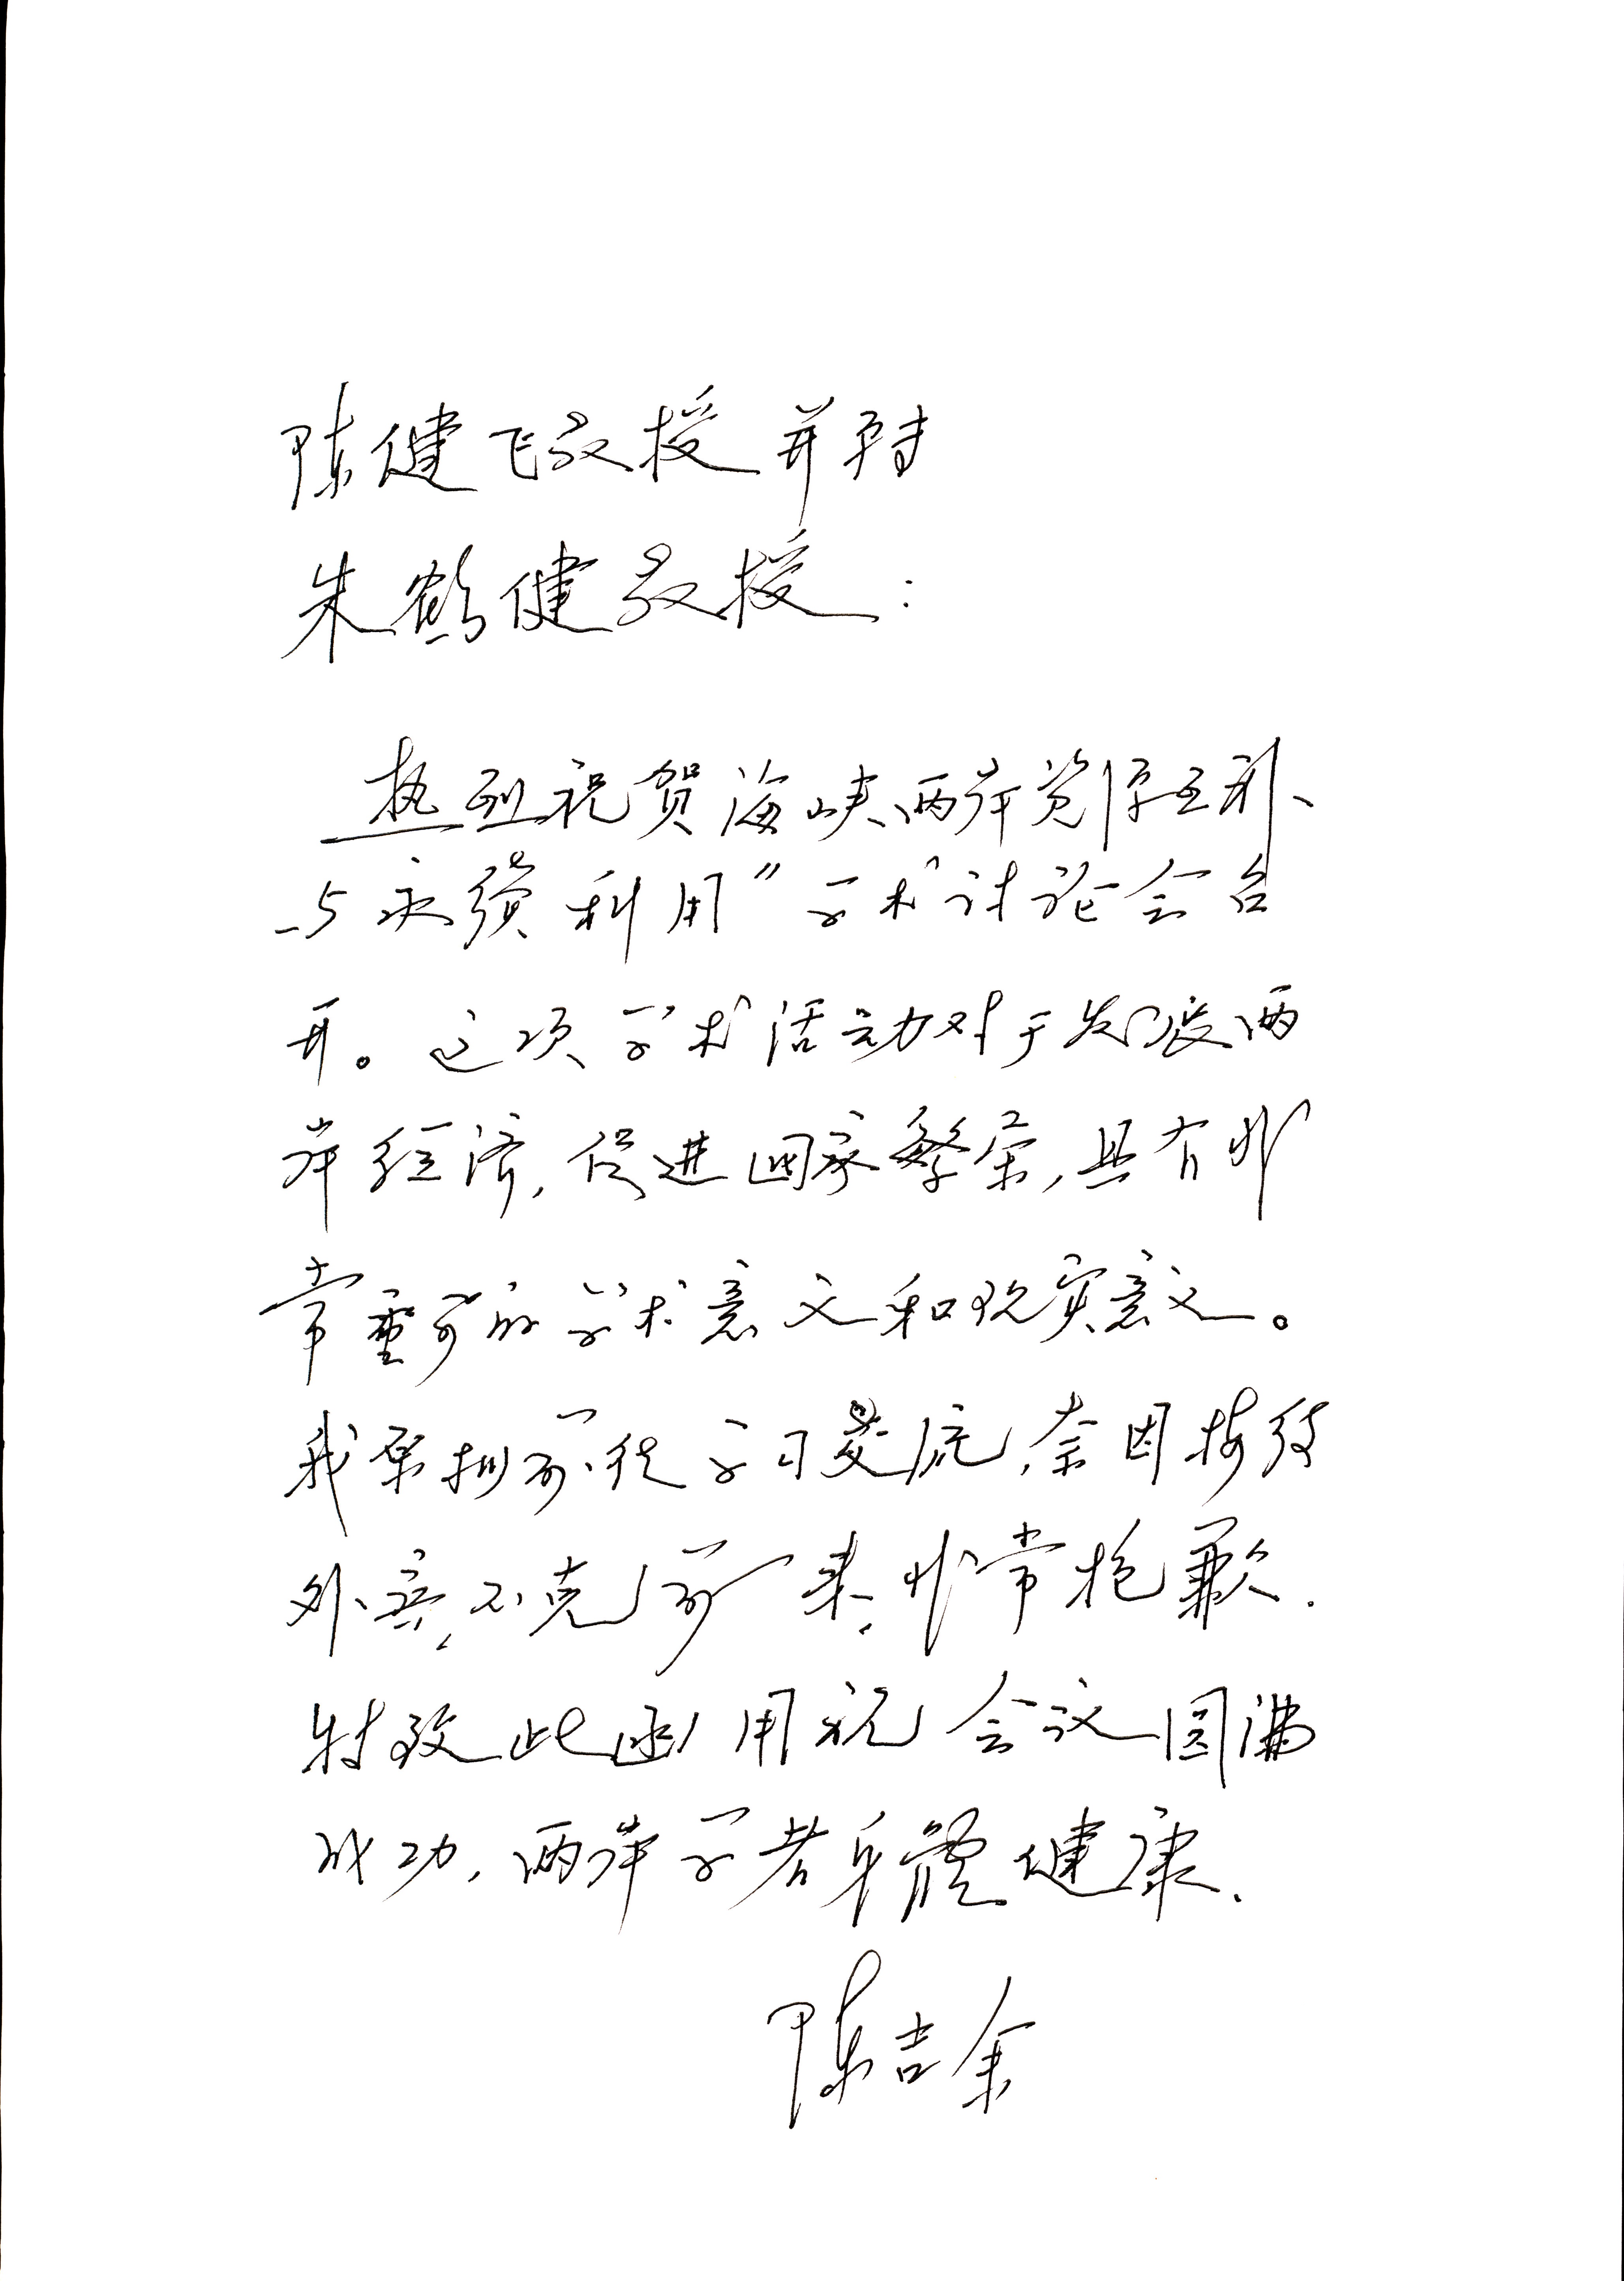 陈健飞教授并转
朱鹤健教授：
热烈祝贺海峡两岸资源互补、
与永续利用”学术讨论会召
开。这项学术活动对于发展两
岸经济,促进国家繁荣,具有非
常重要的学术意义和现实意义。
我原拟前往学习交流,奈因
外宾,不克前来,非常抱歉.
特致此函用祝会议圆满
成功,两岸学者身體健康.
陈吉余